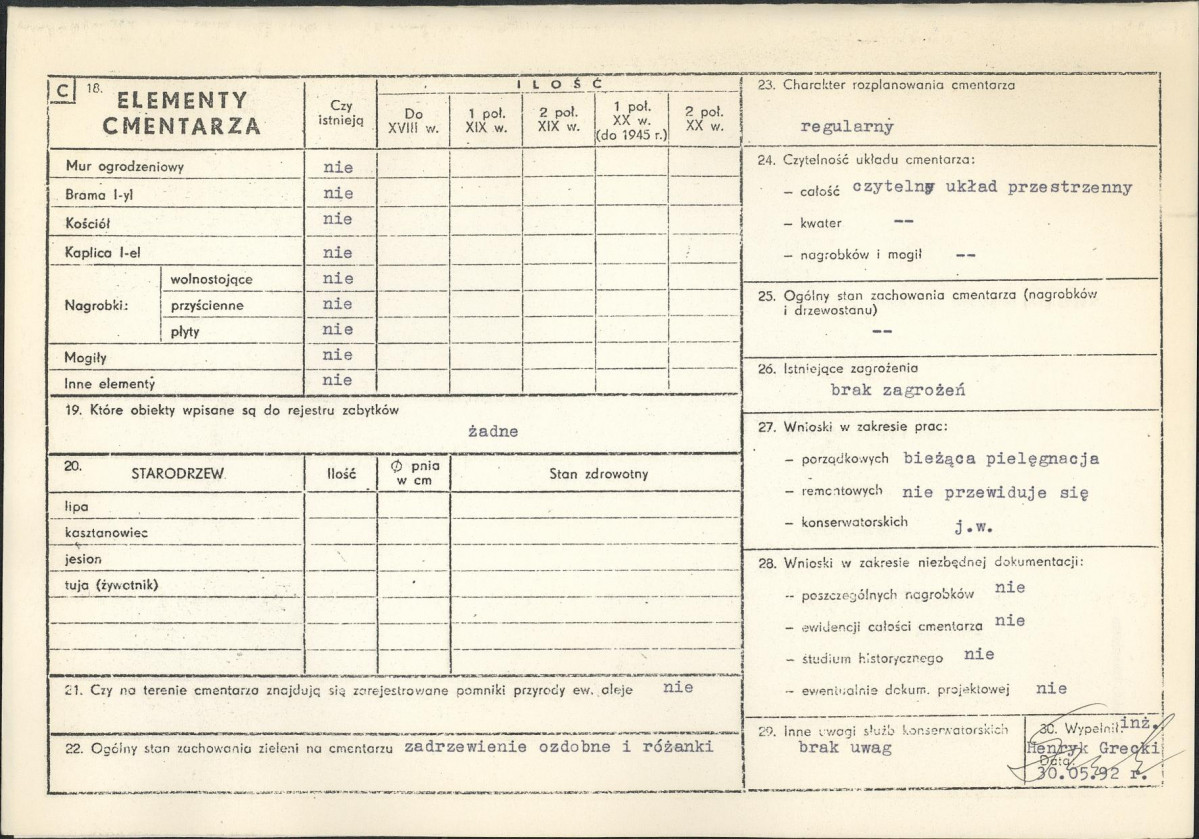 C 18. ELEMENTY CMENTARZA
Czy istnieją
ILOŚĆ
Do XVIII w.
1 poł. XIX w.
2 poł. XIX w.
1 poł. XX w. (do 1945 r.)
2 poł. XX w.
Mur ogrodzeniowy nie
Brama I-yl nie
Kościół nie
Kaplica I-el nie
Nagrobki: wolnostojące nie
przyścienne nie
płyty nie
Mogiły nie
Inne elementy nie
19. Które obiekty wpisane są do rejestru zabytków
żadne
20. STARODRZEW Ilość Ø pnia w cm Stan zdrowotny
lipa
kasztanowiec
jesion
tuja (żywotnik)
21. Czy na terenie cmentarza znajdują się zarejestrowane pomniki przyrody ew. aleje nie
22. Ogólny stan zachowania zieleni na cmentarzu zadrzewienie ozdobne i różanki
23. Charakter rozplanowania cmentarza
regularny
24. Czytelność układu cmentarza:
– całość czytelny układ przestrzenny
– kwater --
– nagrobków i mogił --
25. Ogólny stan zachowania cmentarza (nagrobków
i drzewostanu)
--
26. Istniejące zagrożenia
brak zagrożeń
27. Wnioski w zakresie prac:
– porządkowych bieżąca pielęgnacja
– remontowych nie przewiduje się
– konserwatorskich j.w.
28. Wnioski w zakresie niezbędnej dokumentacji:
– poszczególnych nagrobków nie
– ewidencji całości cmentarza nie
– studium historycznego nie
– ewentualnie dokum. projektowej nie
29. Inne uwagi służb konserwatorskich
brak uwag
30. Wypełnił: inż.
Henryk Grecki
Data
30.05.92 r.